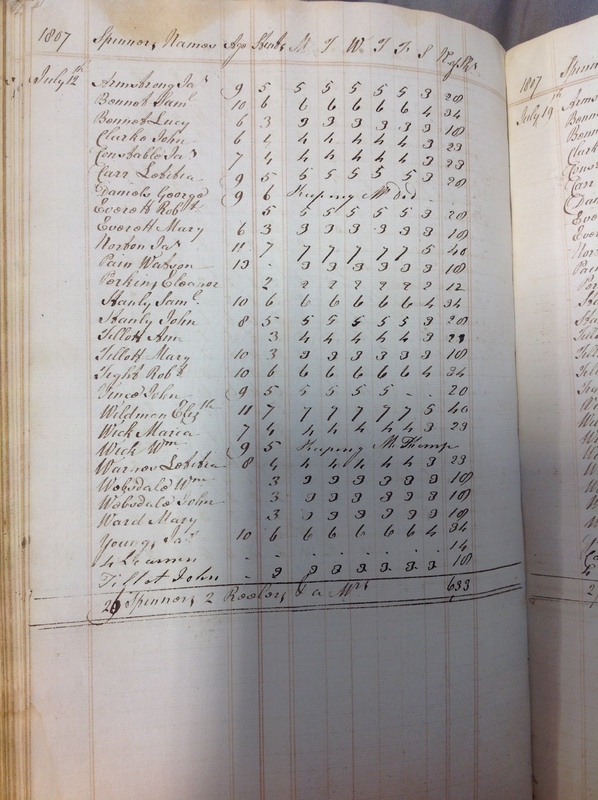 1807 Spinners Names Age Stint M T W T F S No of Sks
July 12th
Armstrong Jas 9 5 5 5 5 5 5 3 28
Bennet Saml 10 6 6 6 6 6 6 4 34
Bennet Lucy 6 3 3 3 3 3 3 3 18
Clarke John 6 4 4 4 4 4 4 3 23
Constable Jas 7 4 4 4 4 4 4 3 23
Carr Letitia 9 5 5 5 5 5 5 3 28
Daniels George 9 6 Keeping
Everett Robt 5 5 5 5 5 5 3 28
Everett Mary 6 3 3 3 3 3 3 3 18
Norton Jas 11 7 7 7 7 7 7 5 40
Pain Watson 13 - 3 3 3 3 3 3 18
Perkins Eleanor 2 2 2 2 2 2 2 12
Stanly Saml 10 6 6 6 6 6 6 4 34
Stanly John 8 5 5 5 5 5 5 3 28
Tillott Ann 3 4 4 4 4 4 3 23
Tillott Mary 10 3 3 3 3 3 3 3 18
Tight Robt 10 6 6 6 6 6 6 4 34
Vince John 9 5 5 5 5 5 - - 20
Wildman Elizth 11 7 7 7 7 7 7 5 40
Wick Maria 7 4 4 4 4 4 4 3 23
Wick Wm 9 5 Keeping
Warnes Letitia 8 4 4 4 4 4 4 3 23
Wobsdale Wm 3 3 3 3 3 3 3 18
Wobsdale John 3 3 3 3 3 3 3 18
Ward Mary 3 3 3 3 3 3 3 18
Young Jas 10 6 6 6 6 6 6 4 34
4 Learners - - - - - - - - 14
Tillot John - 3 3 3 3 3 3 3 18
26 Spinners 2 Reelers & a Mrs 633
1807
July 19th